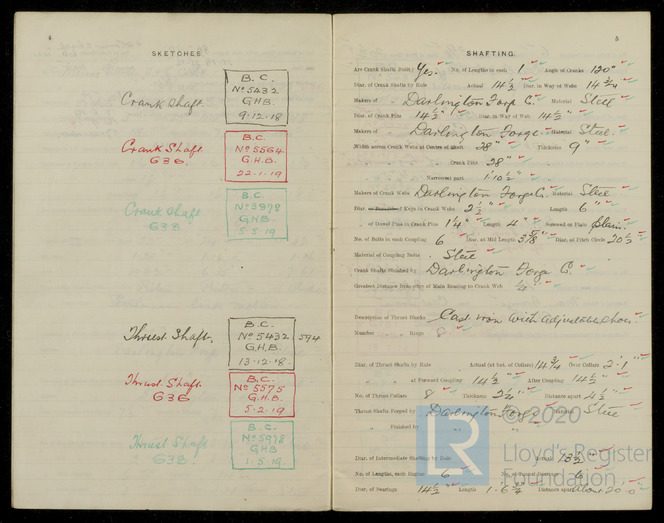 4
SKETCHES.
Crank Shaft.
B.C.
No 5432
G.H.B.
9-12-18
Crank Shaft.
636.
B.C.
No 5564
G.H.B.
22-1-19
Crank Shaft
638
B.C.
No 5978
G.H.B.
5-5-19
Thrust Shaft.
B.C.
No 5432
G.H.B.
13-12-18.
594
Thrust Shaft.
636
B.C.
No 5575
G.H.B.
5-2-19
Thrust Shaft
638.
B.C.
No 5978
G.H.B
1-5-19
5
SHAFTING.
Are Crank Shafts Built? Yes. No. of Lengths in each 1 Angle of Cranks 120°
Diar. of Crank Shafts by Rule Actual 14½ Diar. in Way of Webs 14¾
Makers of " " Darlington Forge Co. Material Steel
Diar. of Crank Pins 14½" Diar. in Way of Web 14½"
Makers of " Darlington Forge. Material Steel.
Width across Crank Webs at Centre of Shaft 28" Thickness 9"
" " " Crank Pins 28"
" " " Narrowest part 1'10½"
Makers of Crank Webs Darlington Forge Co. Material Steel
Diar. of Keys in Crank Webs 2½" Length 6"
" of Dowel Pins in Crank Pins 1¼" Length 4" Screwed or Plain Plain.
No. of Bolts in each Coupling 6 Diar. at Mid Length 3⅝" Diar. of Pitch Circle 20½
Material of Coupling Bolts Steel
Crank Shafts Finished by Darlington Forge Co.
Greatest Distance from edge of Main Bearing to Crank Web ¼"
Description of Thrust Blocks Cast iron with adjustable shoes.
Number " " Rings 8
Diar. of Thrust Shafts by Rule Actual (at bot. of Collars) 14¾ Over Collars 2'1"
" " " at Forward Coupling 14½" After Coupling 14½"
No. of Thrust Collars 8 Thickness 2¼" Distance apart 4½"
Thrust Shafts Forged by Darlington Forge Material Steel
" " Finished by
Diar. of Intermediate Shafting by Rule Actual 13½"
No. of Lengths, each Engine 6 No. of Tunnel Bearings 6
Diar. of Bearings 14½" Length 1'-6¾" Distance apart 20'0"
LR
© 2020
Lloyd's Register
Foundation